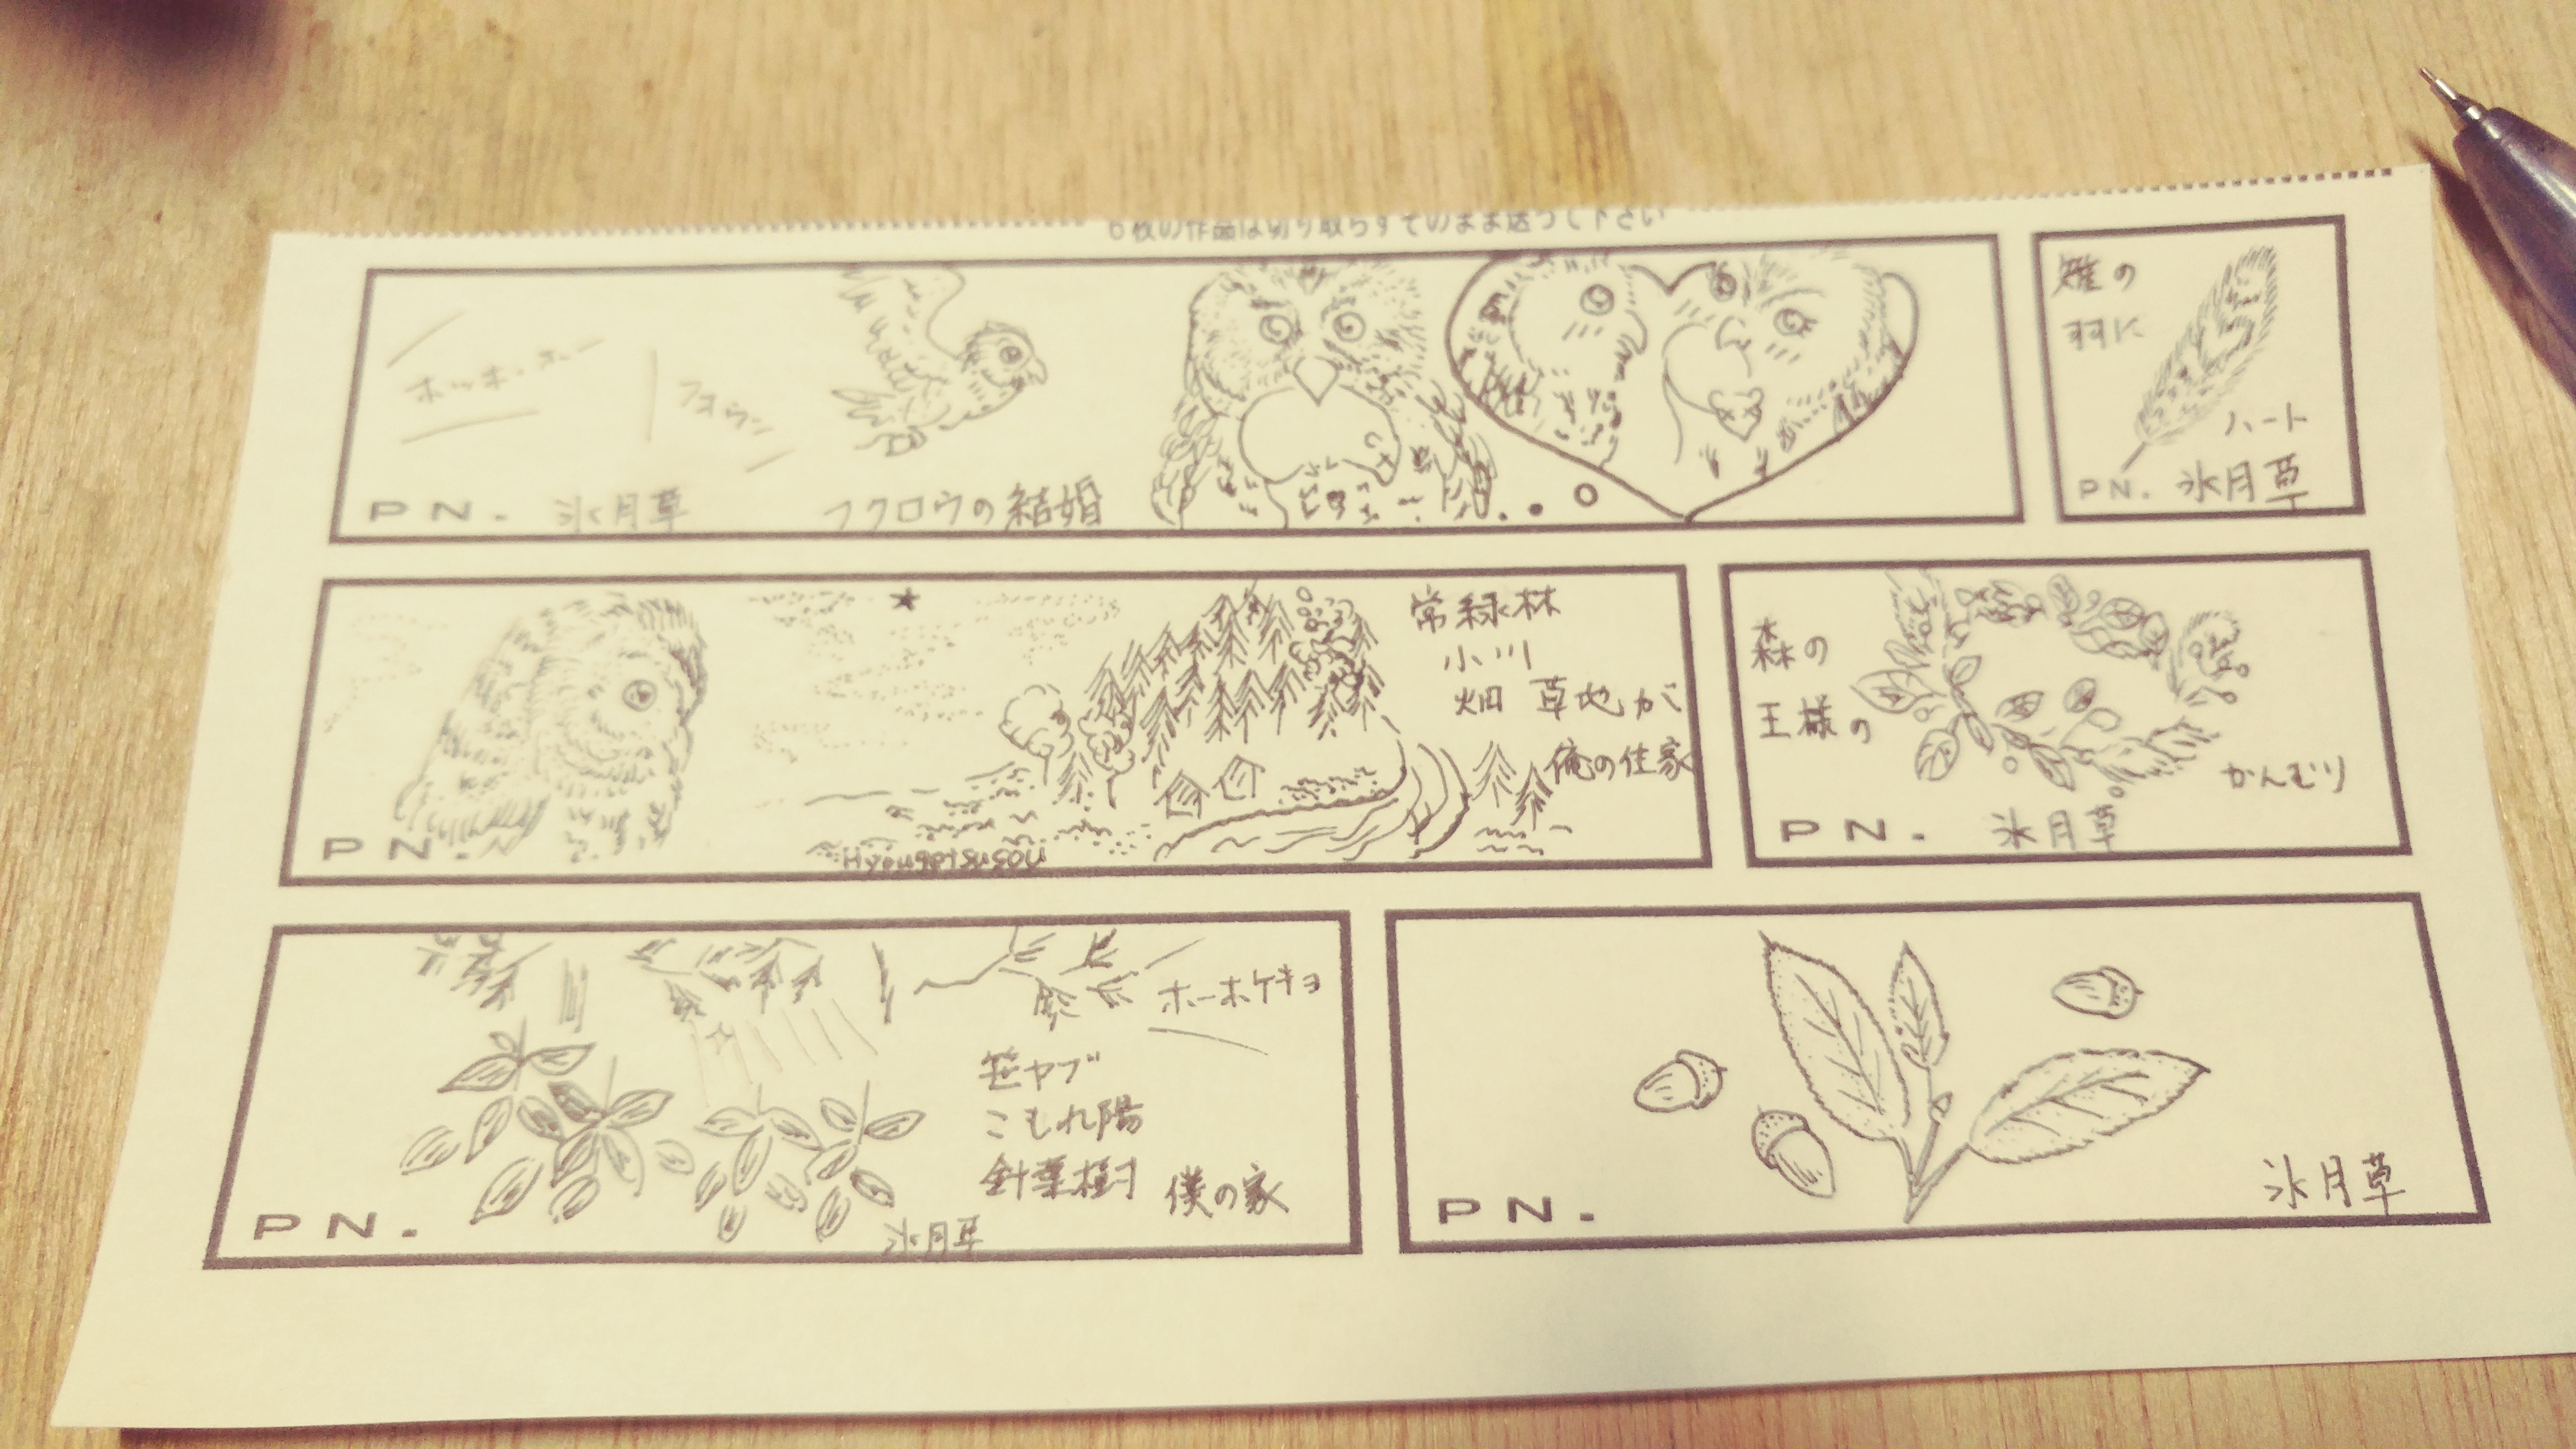 6枚の作品は切り取らずそのまま送って下さい
ホッホーホー
PN. 氷月草
フクロウの結婚
雉の
羽に
ハート
PN. 氷月草
常緑林
小川
畑 草地が
俺の住家
PN.
Hyougetsusou
森の
王様の
かんむり
PN. 氷月草
ホーホケキョ
笹ヤブ
こもれ陽
針葉樹 僕の家
PN. 氷月草
PN. 氷月草